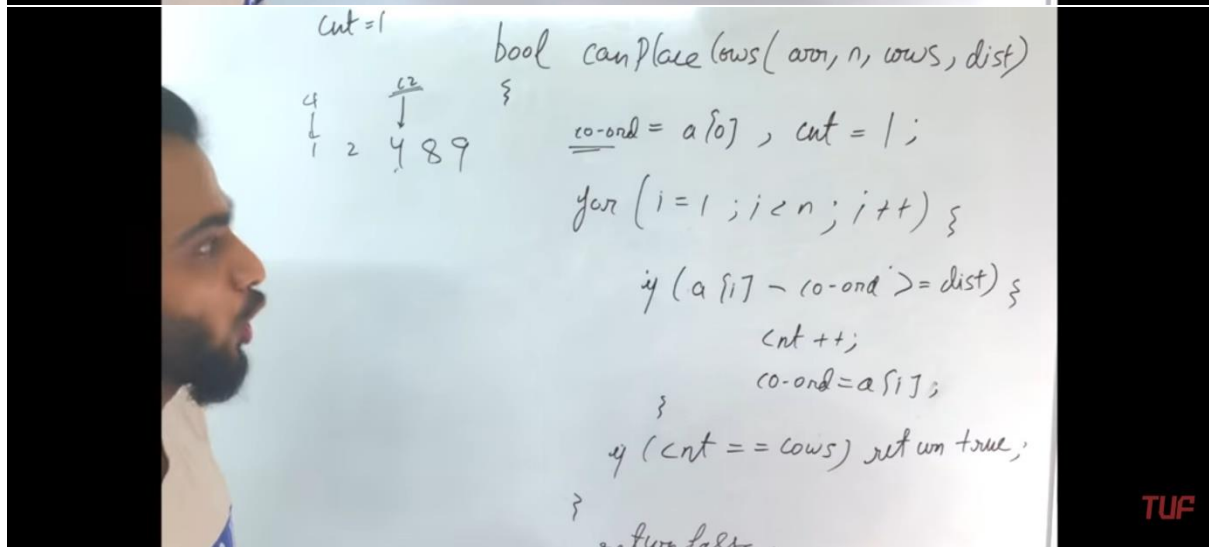 cnt = 1
c1
c2
1 2 4 8 9
bool canPlaceCows( arr, n, cows, dist)
{
co-ord = a[0] , cnt = 1 ;
for ( i = 1 ; i < n ; i ++ ) {
if ( a[i] - co-ord >= dist) {
cnt ++;
co-ord = a[i];
}
if (cnt == cows) return true;
}
TUF